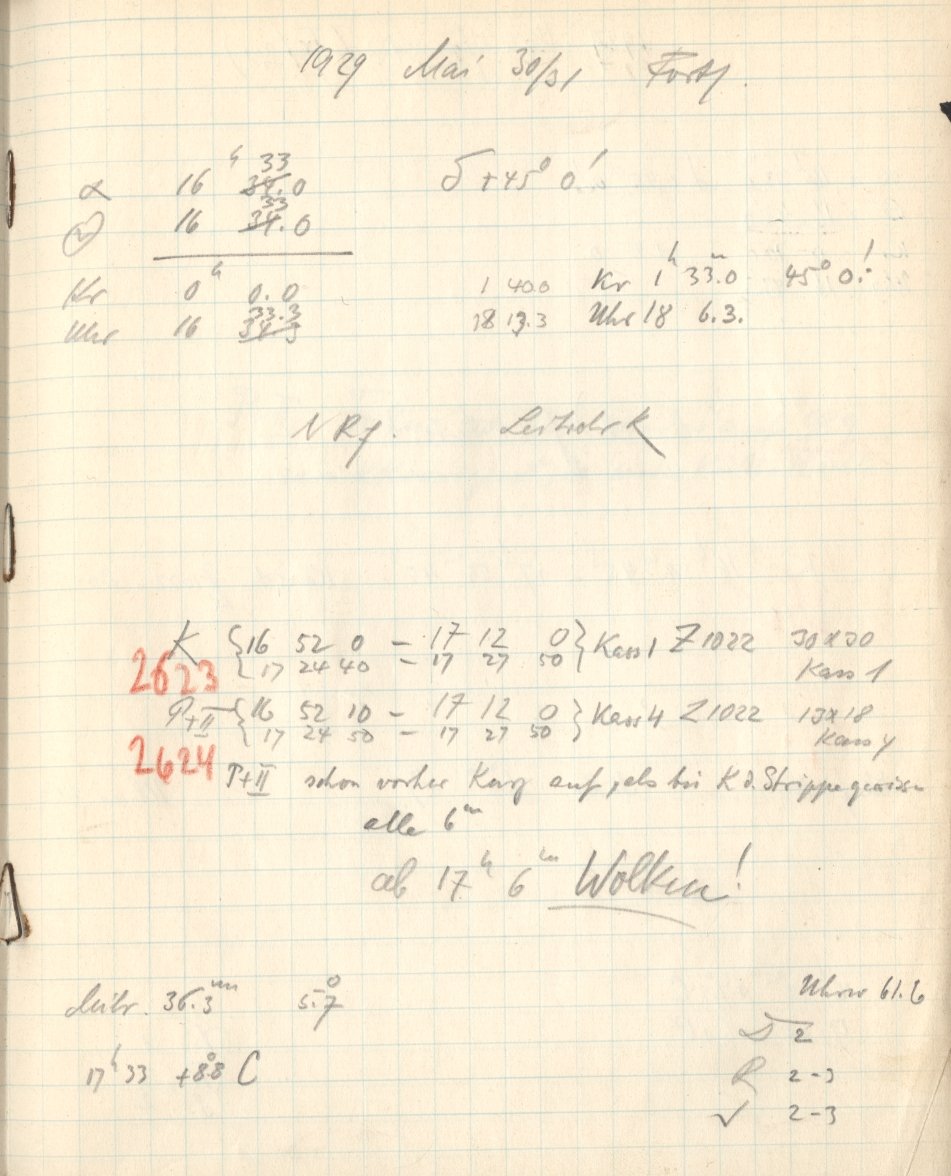 1929 Mai 30/31 Forts.
α 16 h 33 34.0 δ +45° 0'
16 33 34.0
Kr 0 h 0.0 1 40.0 Kr 1 h 33 m.0 45° 0.'
Uhr 16 33.3 34.3 18 13.3 Uhr 18 6.3.
N Rf. Leitrohr K
K {16 52 0 – 17 12 0} Kass 1 Z 1022 30 x 30
2623 {17 24 40 – 17 27 50} Kass 1
P+II {16 52 10 – 17 12 0} Kass 4 Z 1022 13 x 18
{17 24 50 – 17 27 50} Kass 4
2624 P+II schon vorher Kurz auf, als bei K d. Strippe gerissen
alle 6 m
ab 17 h 6 m Wolken!
36.3 mm 5.7° 61.6
D 2
17 h 33 +8.8° C R 2-3
✓ 2-3